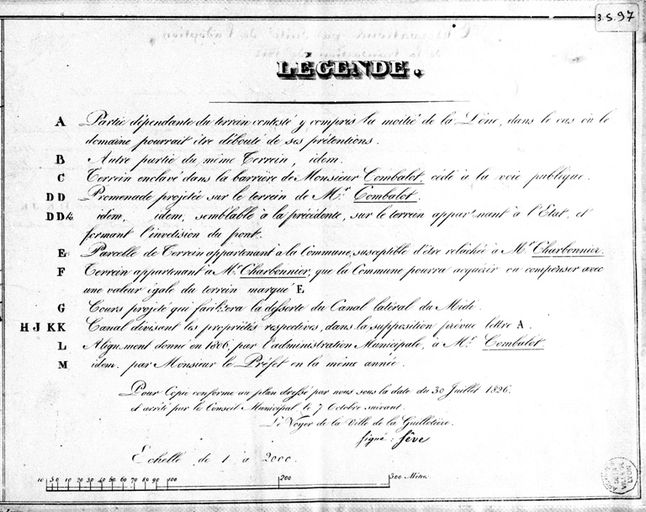 3.S.97
LÉGENDE.
A Partie dépendante du terrain contesté y compris la moitié de la Lône, dans le cas où le
domaine pourrait être débouté de ses prétentions.
B Autre partie du même Terrein, idem.
C Terrein enclavé dans la barrière de Monsieur Combalot, cédé à la voie publique.
DD Promenade projetée sur le terrein de Mr. Combalot.
DD& idem, idem, semblable à la précédente, sur le terrein appartenant à l'Etat, et
formant l'invetision du pont.
E Parcelle de Terrein appartenant à la Commune, susceptible d'être relachée à Mr. Charbonnier.
F Terrein appartenant à Mr. Charbonnier, que la Commune pourra acquérir ou compenser avec
une valeur égale du terrein marqué E.
G Cours projeté qui facilitera la desserte du Canal latéral du Midi.
H J K K Canal divisant les propriétés respectives, dans la supposition prévue lettre A.
L Alignement donné en 1806, par l'administration Municipale, à Mr. Combalot.
M idem. par Monsieur le Préfet en la même année.
Pour Copie conforme au plan dressé par nous sous la date du 30 Juillet 1826.
et arrêté par le Conseil Municipal le 7 Octobre suivant.
Le Voyer de la Ville de la Guillotière.
signé : Sève
Echelle de 1 à 2000.
10 5 0 10 20 30 40 50 60 70 80 90 100 200 300 Mètres